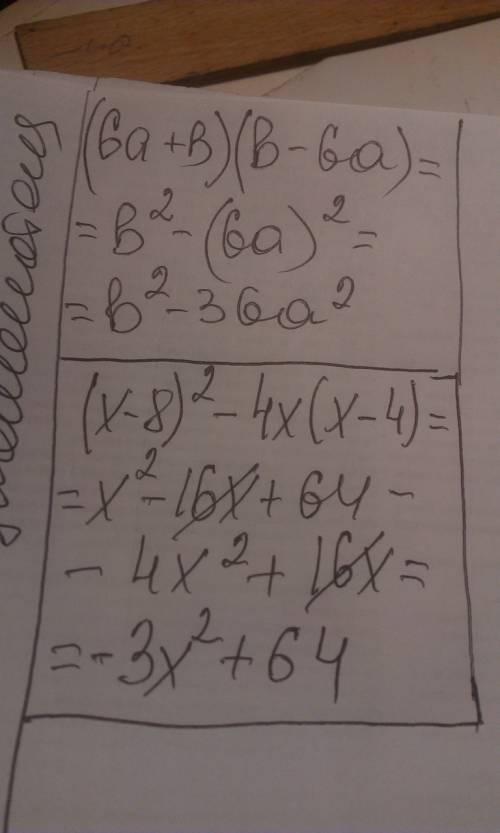 (6a+b)(b-6a)=
=b²-(6a)²=
=b²-36a²
(x-8)²-4x(x-4)=
=x²-16x+64-
-4x²+16x=
=-3x²+64